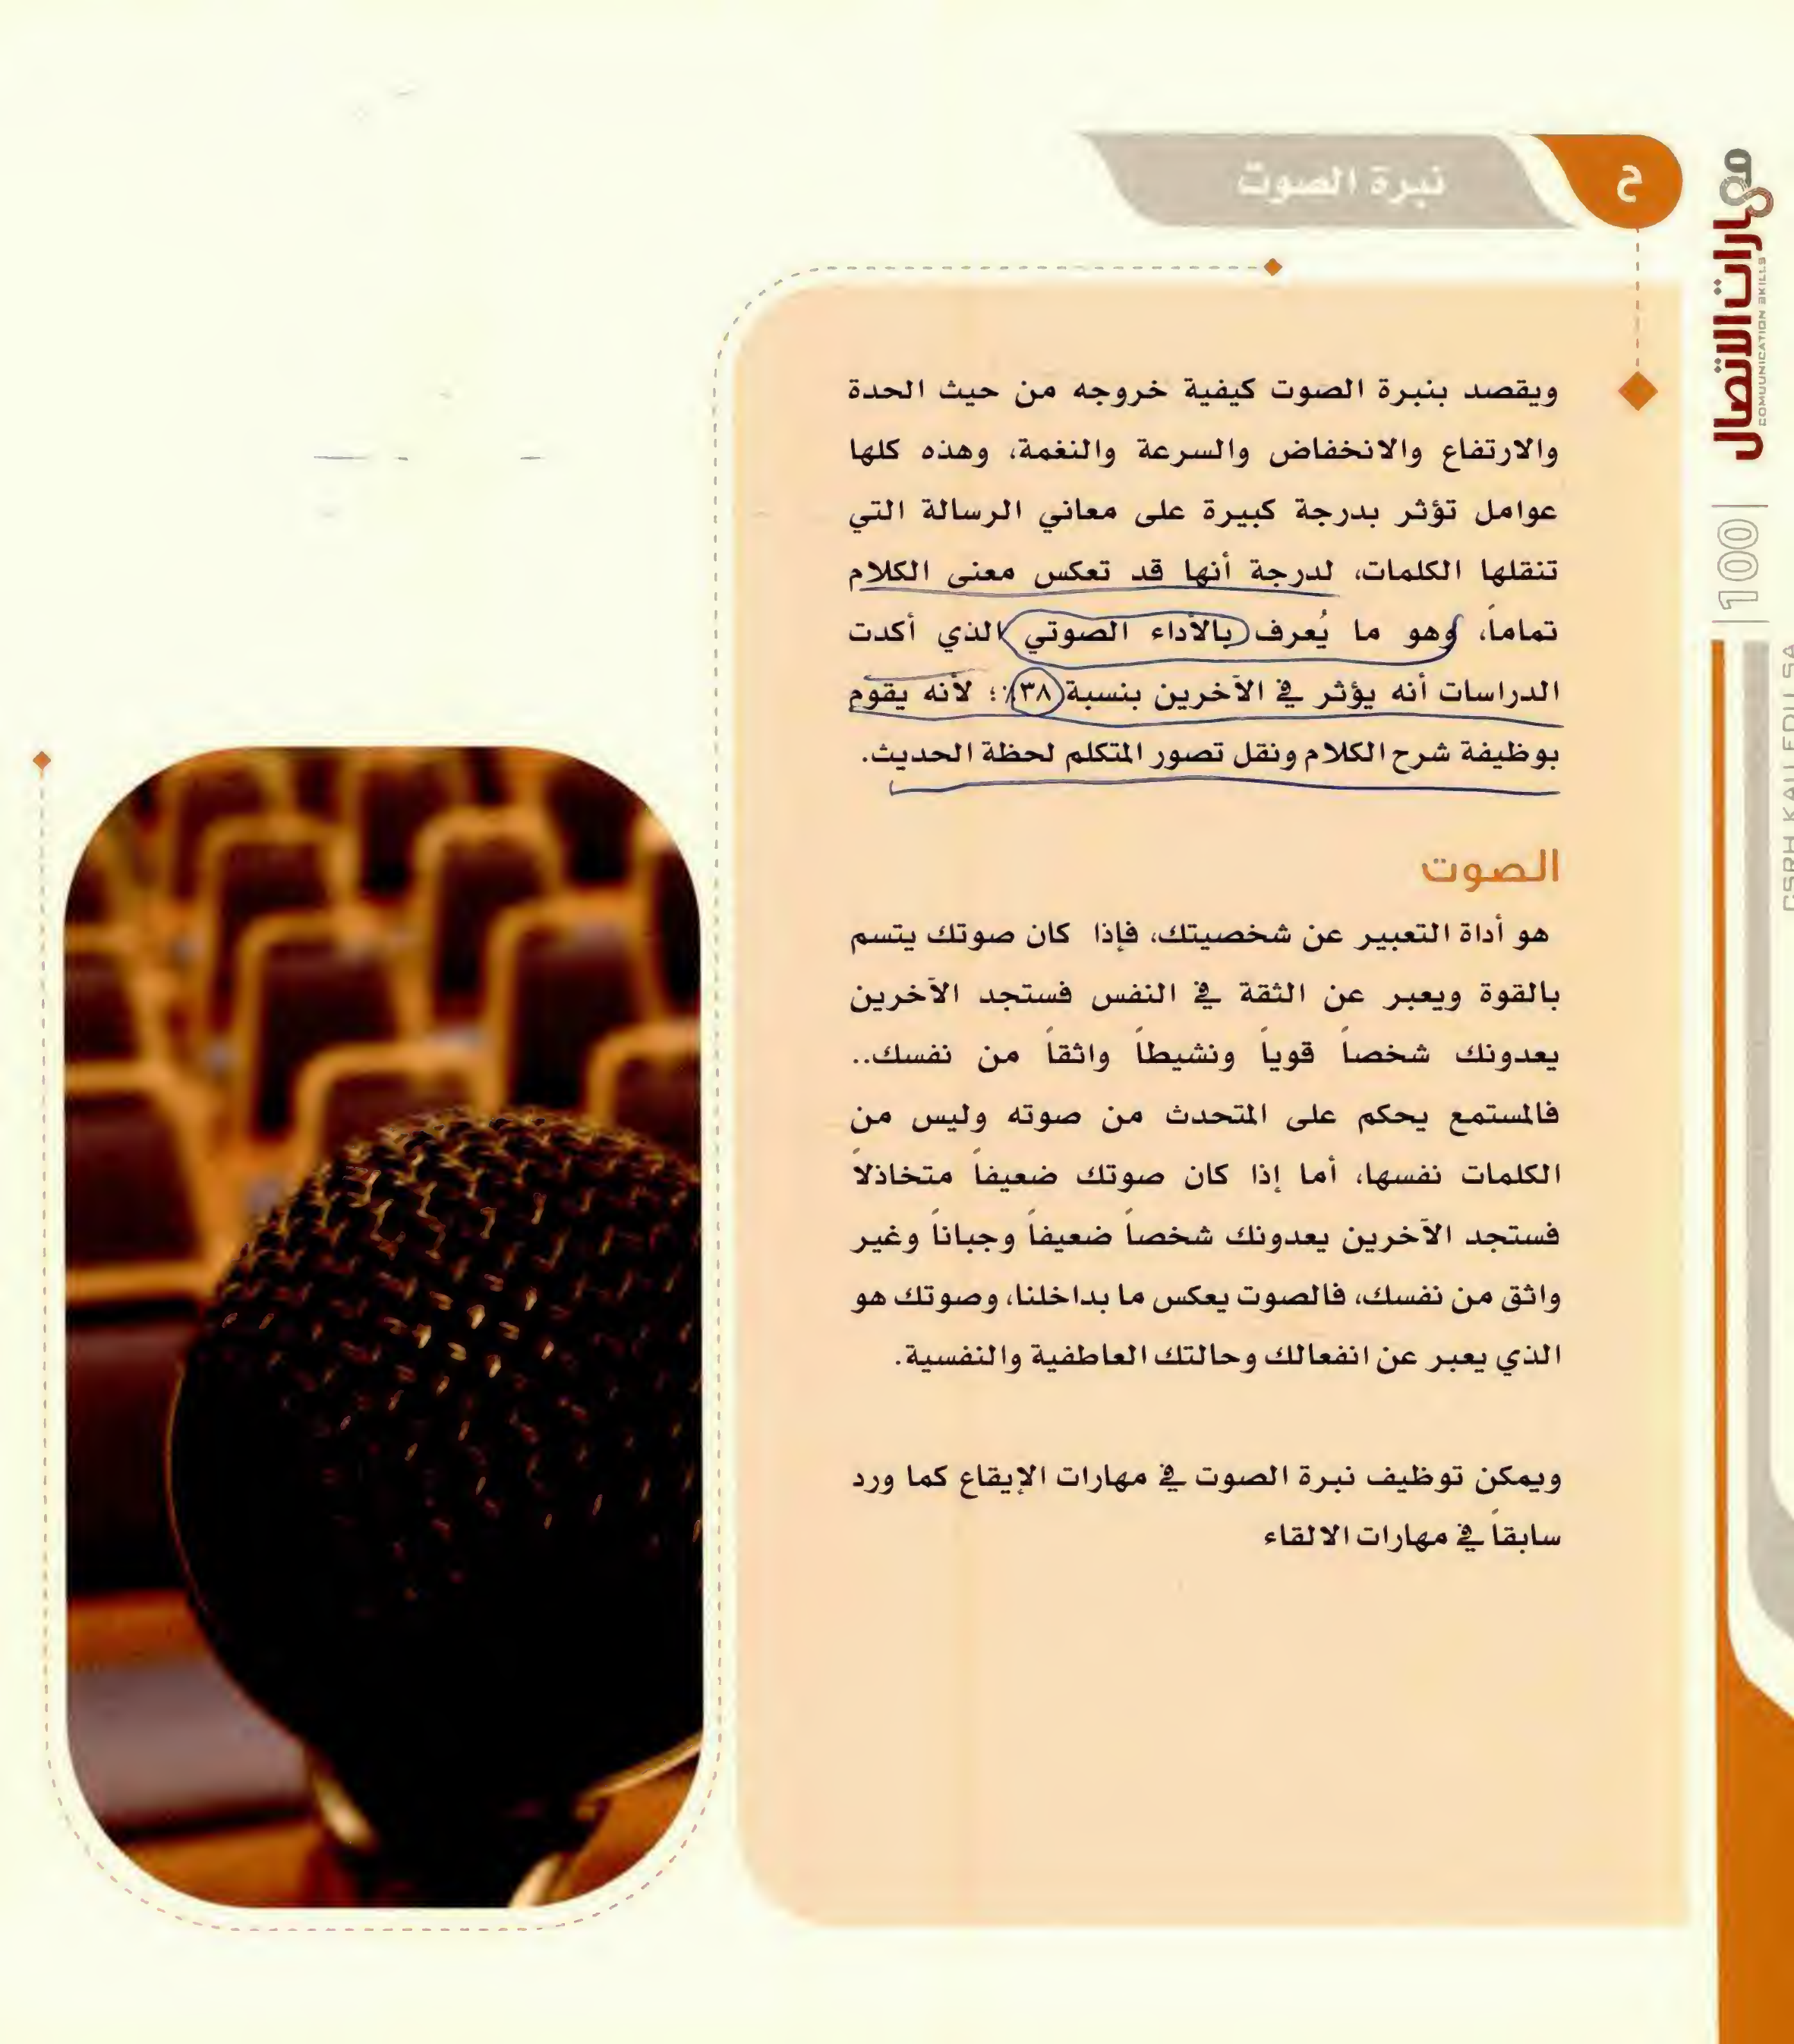 ح
نبرة الصوت
مهارات الاتصال
COMUUNICATION SKILLS
100
ويقصد بنبرة الصوت كيفية خروجه من حيث الحدة
والارتفاع والانخفاض والسرعة والنغمة، وهذه كلها
عوامل تؤثر بدرجة كبيرة على معاني الرسالة التي
تنقلها الكلمات، لدرجة أنها قد تعكس معنى الكلام
تماماً، وهو ما يُعرف بالأداء الصوتي الذي أكدت
الدراسات أنه يؤثر في الآخرين بنسبة ٣٨٪؛ لأنه يقوم
بوظيفة شرح الكلام ونقل تصور المتكلم لحظة الحديث.
الصوت
هو أداة التعبير عن شخصيتك، فإذا كان صوتك يتسم
بالقوة ويعبر عن الثقة في النفس فستجد الآخرين
يعدونك شخصاً قوياً ونشيطاً واثقاً من نفسك..
فالمستمع يحكم على المتحدث من صوته وليس من
الكلمات نفسها، أما إذا كان صوتك ضعيفاً متخاذلاً
فستجد الآخرين يعدونك شخصاً ضعيفاً وجباناً وغير
واثق من نفسك، فالصوت يعكس ما بداخلنا، وصوتك هو
الذي يعبر عن انفعالك وحالتك العاطفية والنفسية.
ويمكن توظيف نبرة الصوت في مهارات الإيقاع كما ورد
سابقاً في مهارات الالقاء